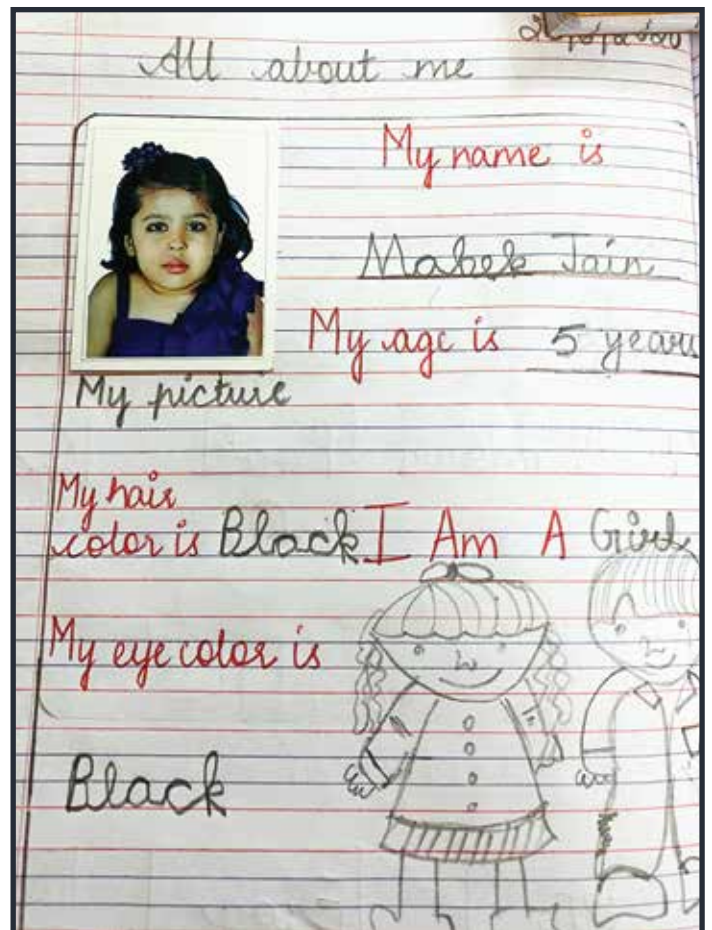 All about me
My name is
Mahek Jain
My age is 5 years
My picture
My hair
color is Black I Am A Girl
My eye color is
Black